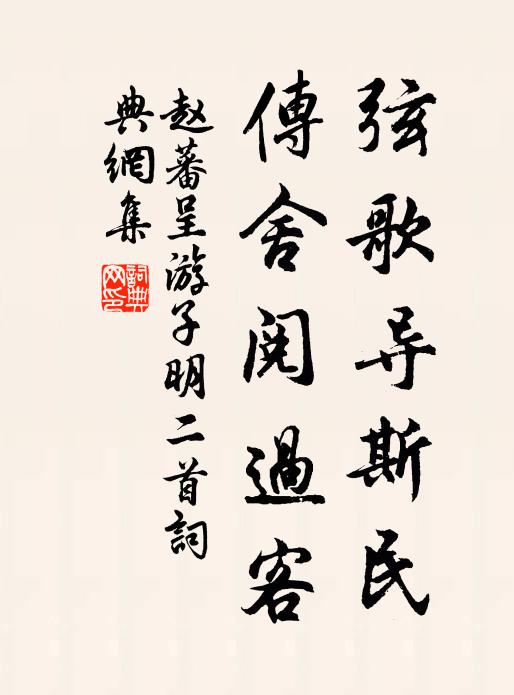 弦歌导斯民
傳舍阅過客
赵蕃呈游子明二首詞
典網集
詞典
网印